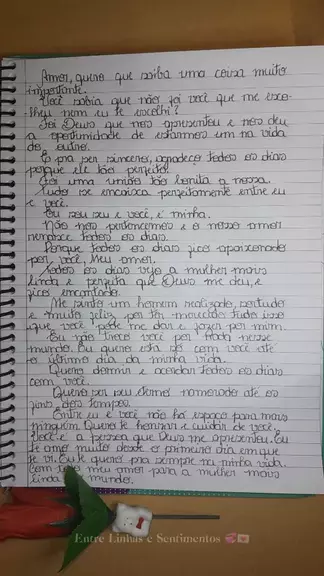 Amor, quero que saiba uma coisa muito
importante.
Você sabia que não foi você que me esco-
lheu nem eu te escolhi?
Foi Deus que nos apresentou e nos deu
a oportunidade de estarmos um na vida
do outro.
E pra ser sincero, agradeço todos os dias
porque ele tão perfeito.
Foi uma união tão bonita a nossa.
Tudo se encaixa perfeitamente entre eu
e você.
Eu sou seu e você, é minha.
Nós nos pertencemos e o nosso amor
renasce todos os dias.
Porque todos os dias fico apaixonado
por, você, Meu amor.
Todos os dias vejo a mulher mais
linda e perfeita que Deus me deu, e
fico encantado.
Me sinto um homem realizado, sortudo
e muito feliz por ter tudo isso
que você pode me dar e fazer por mim.
Eu não troco você por nada nesse
mundo. Eu quero está só com você até
o último dia da minha vida.
Quero dormir e acordar todos os dias
com você.
Quero ser seu eterno namorado até os
fins dos tempos.
Entre eu e você não há espaço para mais
ninguém. Quero te honrar e cuidar de você.
Você é a pessoa que Deus me apresentou. Eu
te amo muito desde o primeiro dia em que
te vi. Eu te quero pra sempre na minha vida.
Com todo meu amor para a mulher mais
linda do mundo.
Entre Linhas e Sentimentos 💞💌